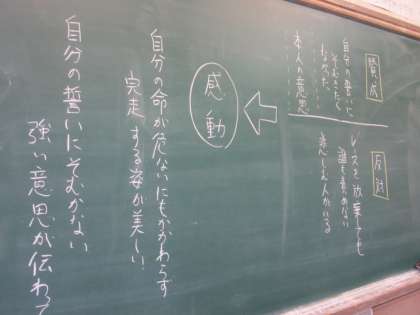 賛成
自分の誓いに
そむきたく
なかった
本人の意思
反対
レースを放棄しても
誰も責めない
悲しむ人がいる
感動
自分の命が危ないにもかかわらず
完走する姿が美しい
自分の誓いにそむかない
強い意思が伝わって